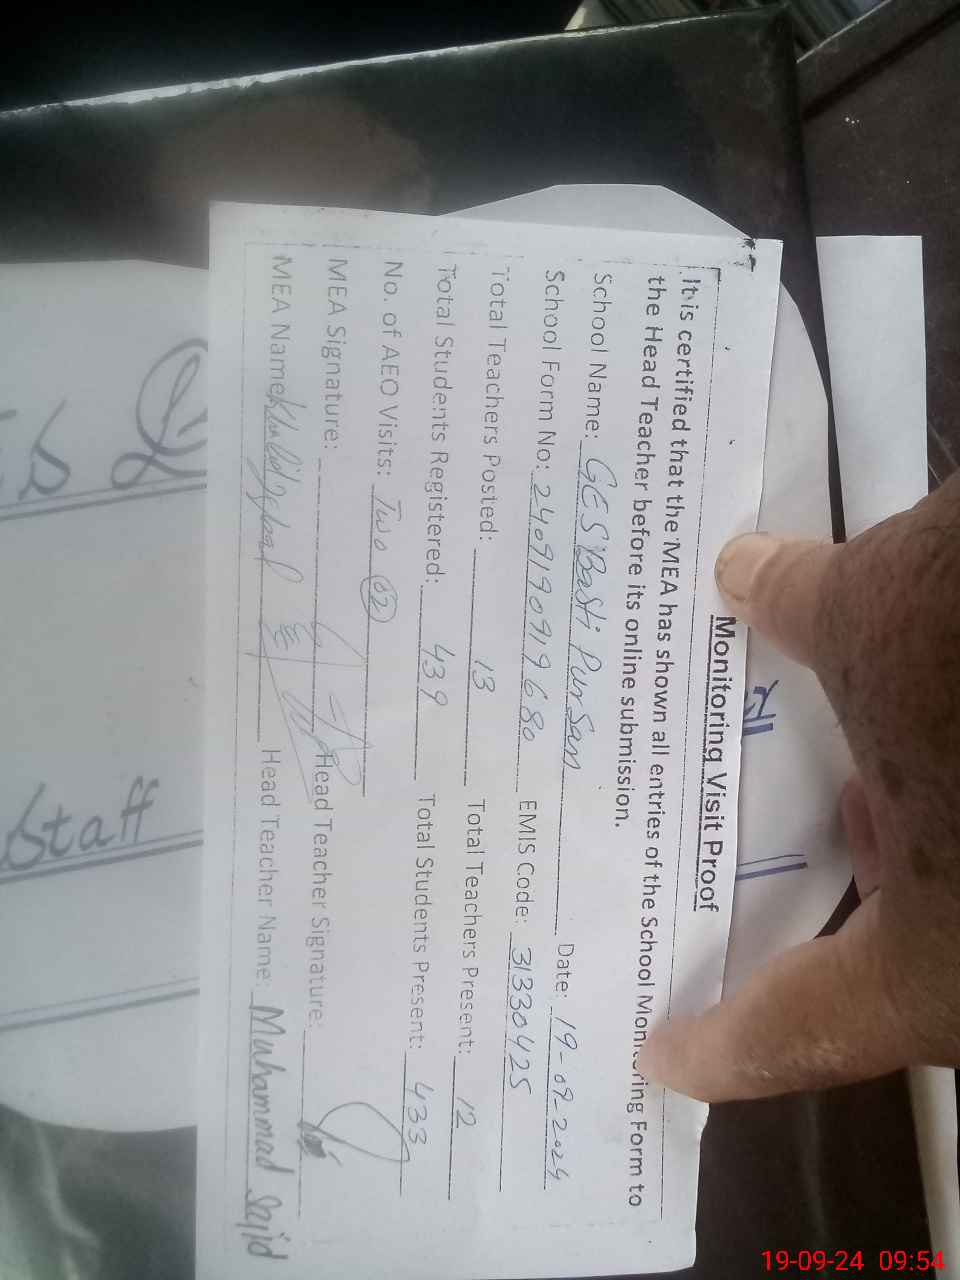 Monitoring Visit Proof
It is certified that the MEA has shown all entries of the School Monitoring Form to
the Head Teacher before its online submission.
School Name: GES Basti Pur San Date: 19-09-2024
School Form No: 240919091968０ EMIS Code: 31330425
Total Teachers Posted: 13 Total Teachers Present: 12
Total Students Registered: 439 Total Students Present: 433
No. of AEO Visits: Two 02
MEA Signature: Head Teacher Signature:
MEA Name Khalid Head Teacher Name: Muhammad Sajid
Staff
19-09-24 09:54